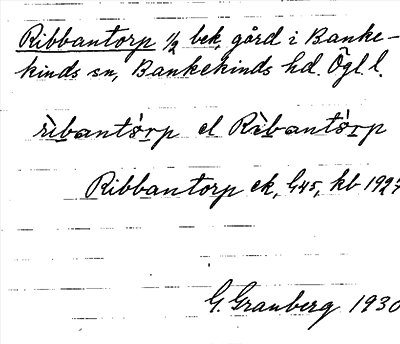 Ribbantorp 1/2 bek. gård i Banke-
kinds sn, Bankekinds hd. Ögl. l.
ribantorp el Ribantorp
Ribbantorp ek, G45, kb 1927
G. Granberg 1930